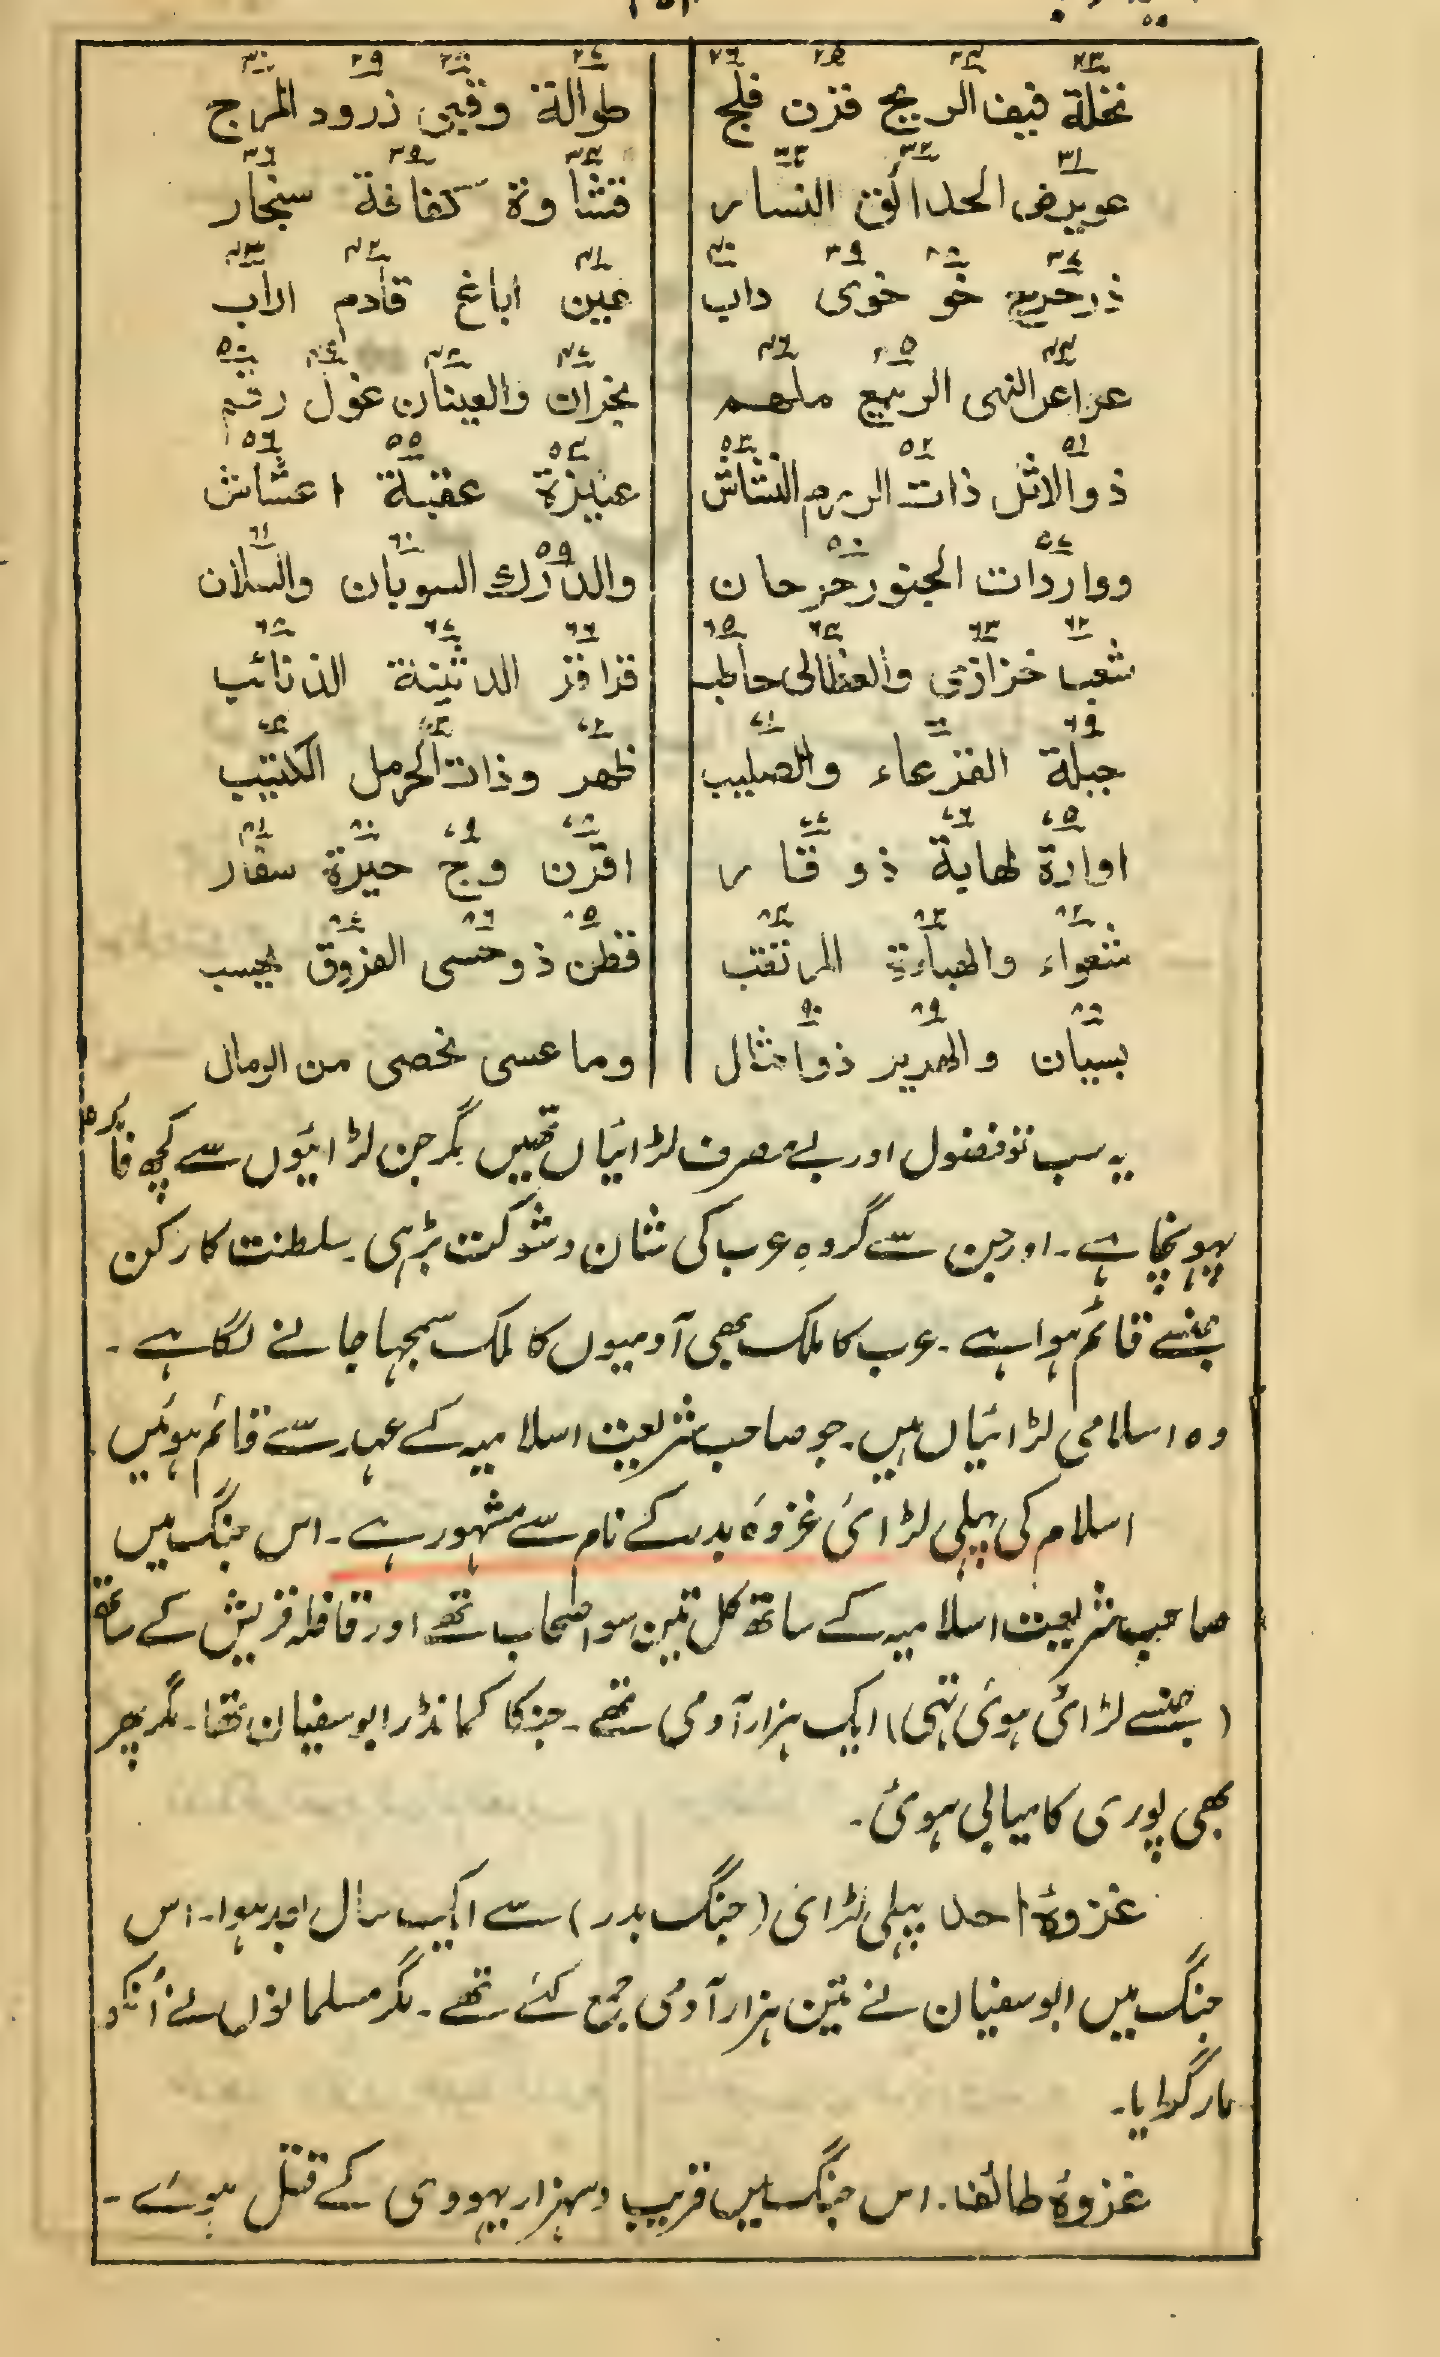 نخلة فيف الريح قرن فلج طوالة وقين زرود المرج
عويرض الحدائق النسار قشاوة كفافة سنجار
ذر حرح خو خوى داب عين اباغ قادم اراب
عراعر النهى الربيع ملهم نجران والعينان غول رقم
ذو الاثل ذات الرمرم النشاش عنيزة عقبة اعشاش
وواردات الجنور حزحان والدرك السوبان والسلان
شعب خزازى والعظالى حاطب قراقر الدثينة الذنائب
جبلة القرعاء والصليب ظهر وذات الحرمل الكثيب
اوارة لهابة ذو قار اقرن وج حيرة سفار
شعواء والهباءة المرتقب قطن ذو حسى الفروق يحسب
بسيان والهرير ذوامثال وما عسى نحصى من الرمال
یہ سب تو فضول اور بے مصرف لڑائیاں تھیں مگر جن لڑائیوں سے کچھ فائدہ
پہونچا ہے۔ اور جن سے گروہِ عرب کی شان و شوکت بڑہی۔ سلطنت کا رکن
جنسے قائم ہوا ہے۔ عرب کا ملک بھی آدمیوں کا ملک سمجہا جانے لگا ہے۔
وہ اسلامی لڑائیاں ہیں۔ جو صاحب شریعت اسلامیہ کے عہد سے قائم ہوئیں۔
اسلام کی پہلی لڑائی غزوۂ بدر کے نام سے مشہور ہے۔ اس جنگ میں
صاحب شریعت اسلامیہ کے ساتھ کل تین سو اصحاب تھے اور قافلہ قریش کے ساتھ
(جنسے لڑائی ہوئی تہی) ایک ہزار آدمی تھے۔ جنکا کمانڈر ابوسفیان تھا۔ مگر پھر
بھی پوری کامیابی ہوئی۔
غزوۂ احد پہلی لڑائی (جنگ بدر) سے ایک سال بعد ہوا۔ اس
جنگ میں ابوسفیان نے تین ہزار آدمی جمع کئے تھے۔ مگر مسلمانوں نے اُنکو
مار گرایا۔
غزوۂ طائف۔ اس جنگ میں قریب دسہزار یہودی کے قتل ہوئے۔